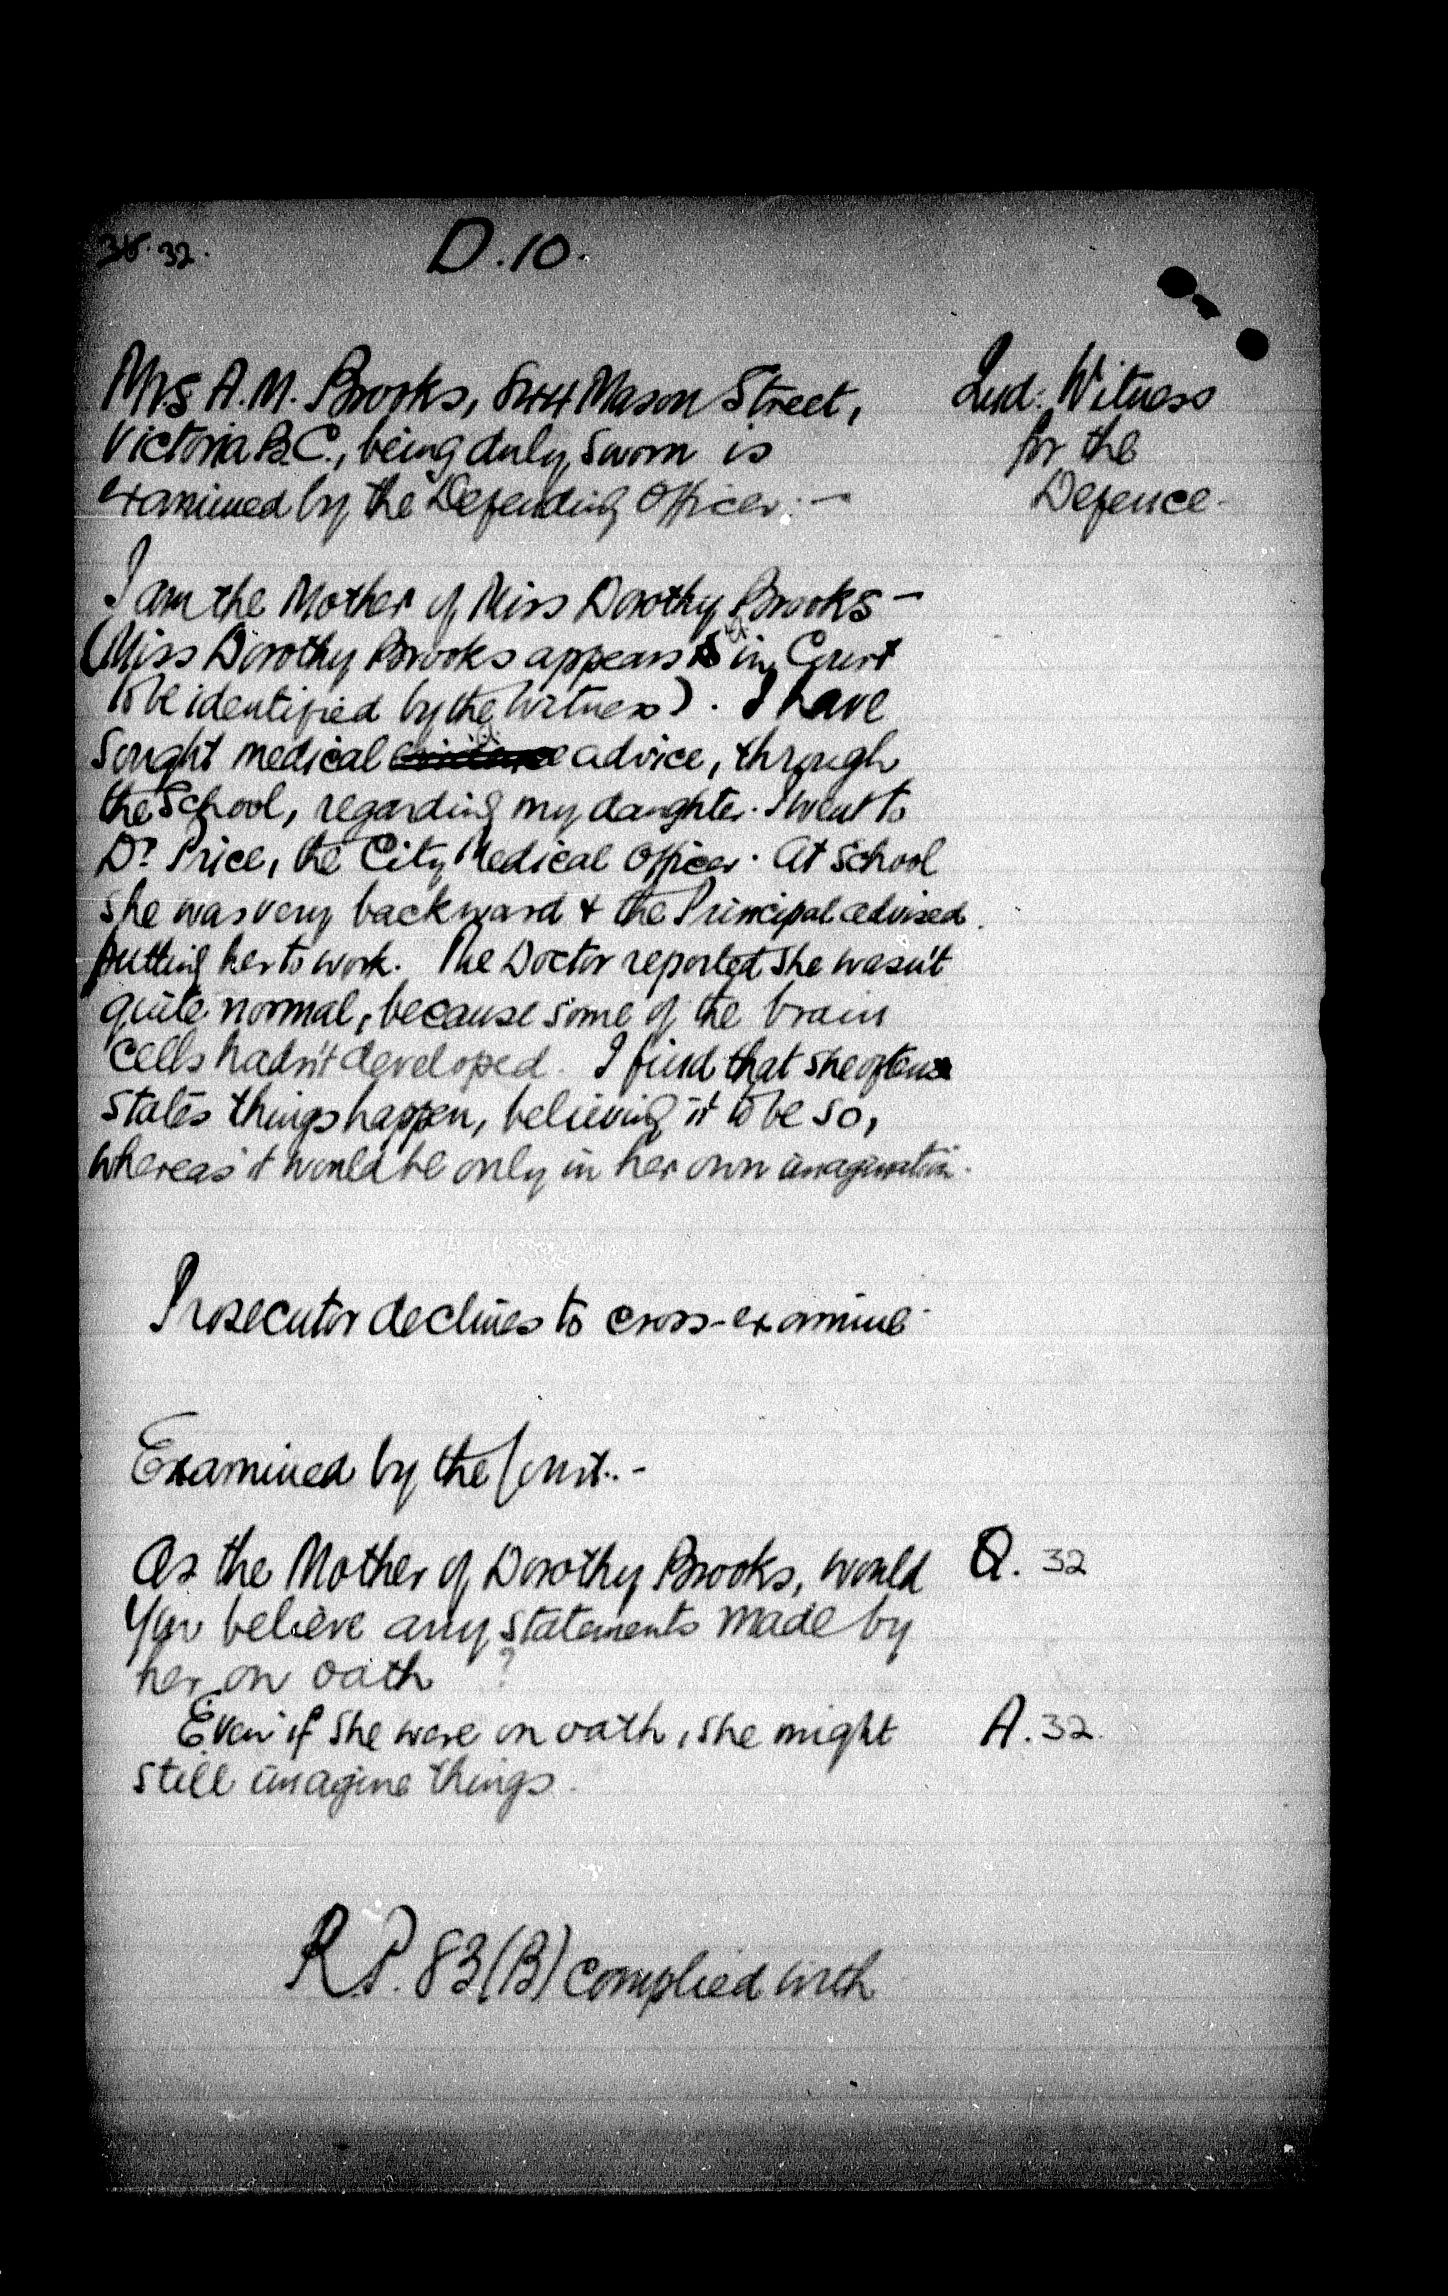 32.
D. 10.
Mrs A. M. Brooks, 844 Mason Street,
2nd. Witness
for the
Defence -
Victoria B.C., being duly sworn is
examined by the Defending Officer: -
I am the Mother of Miss Dorothy Brooks -
(Miss Dorothy Brooks appears in Court
to be identified by the witness). I have
sought medical advice, through
the School, regarding my daughter. I went to
Dr. Price, the City Medical Officer. At School
she was very backward & the Principal advised
putting her to work. The Doctor reported she wasn't
quite normal, because some of the brain
cells hadn't developed. I find that she often
states things happen, believing it to be so,
whereas it would be only in her own imagination.
Prosecutor declines to cross-examine -
Examined by the Court. -
As the Mother of Dorothy Brooks, would Q. 32
you believe any statements made by
her on oath ?
Even if she were on oath, she might A. 32.
still imagine things.
R.P. 83 (B) complied with